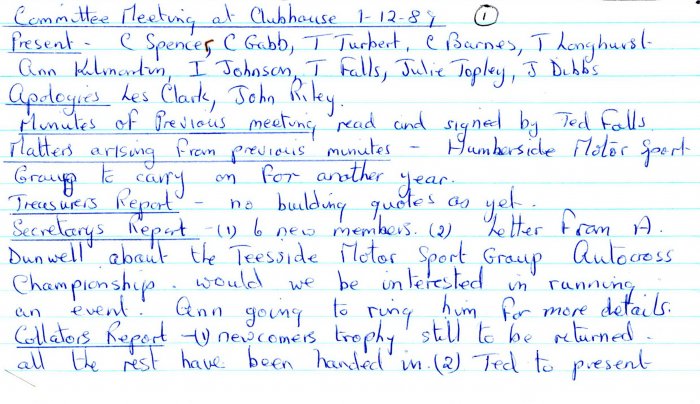 Committee Meeting at Clubhouse 1-12-89 ①
Present - C Spencer, C Gabb, T Turbert, C Barnes, T Longhurst
Ann Kilmartin, I Johnson, T Falls, Julie Topley, J Dibbs
Apologies Les Clark, John Riley.
Minutes of Previous meeting read and signed by Ted Falls
Matters arising from previous minutes - Humberside Motor Sport
Group to carry on for another year.
Treasurers Report - no building quotes as yet.
Secretarys Report - (1) 6 new members. (2) Letter from A.
Dunwell about the Teesside Motor Sport Group Autocross
Championship. would we be interested in running
an event. Ann going to ring him for more details.
Collators Report - (1) newcomers trophy still to be returned.
all the rest have been handed in. (2) Ted to present